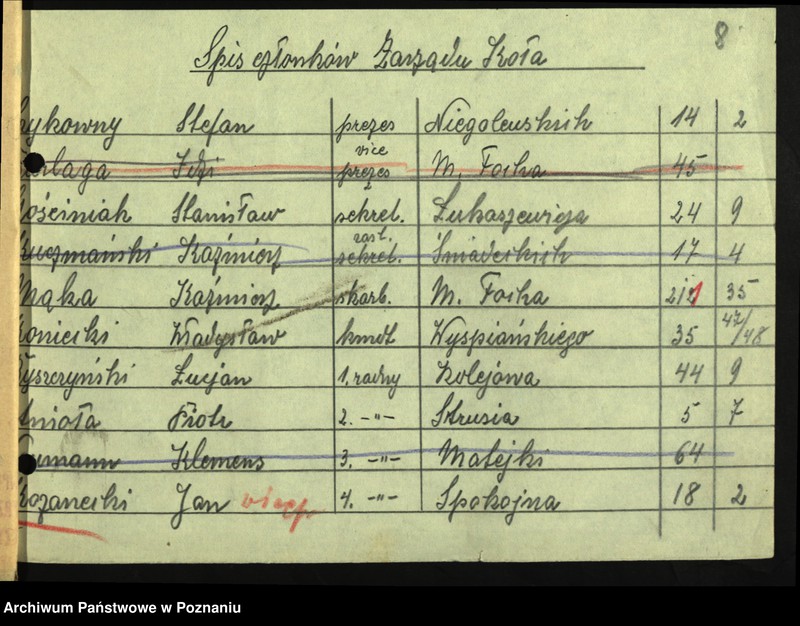 8
Spis członków Zarządu Koła
ykowny Stefan prezes Niegolewskich 14 2
laga Idzi vice prezes M. Focha 45
ościniak Stanisław sekret. Łukaszewicza 24 9
uczmański Kaźmierz zast. sekret. Śniadeckich 17 4
Mąka Kaźmierz skarb. M. Focha 35
oniecki Władysław kmdt Wyspiańskiego 35 47/48
yszczyński Lucjan 1. radny Kolejowa 44 9
mioła Piotr 2. -"- Strusia 5 7
umann Klemens 3. -"- Matejki 64
Kozanecki Jan vicep 4. -"- Spokojna 18 2
Archiwum Państwowe w Poznaniu